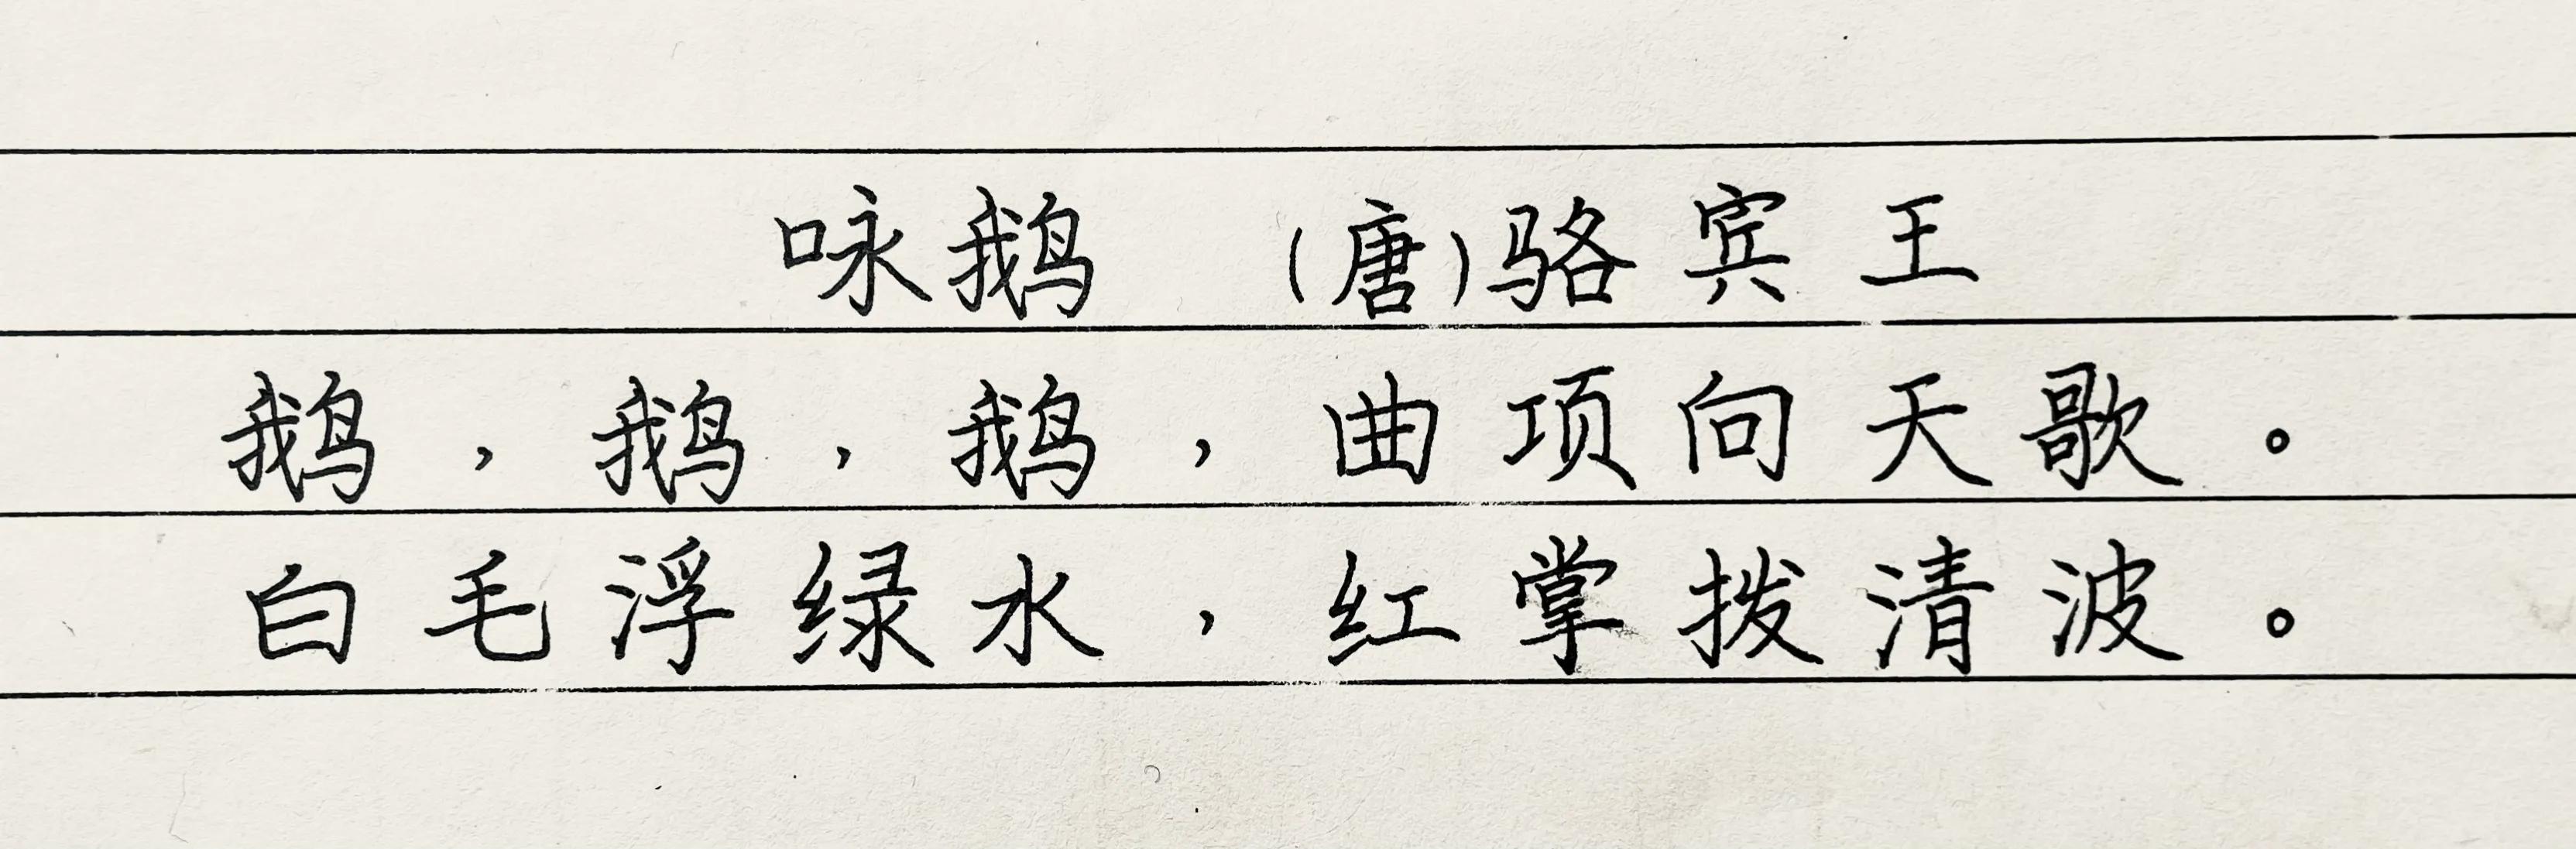 咏鹅 (唐)骆宾王
鹅，鹅，鹅，曲项向天歌。
白毛浮绿水，红掌拨清波。